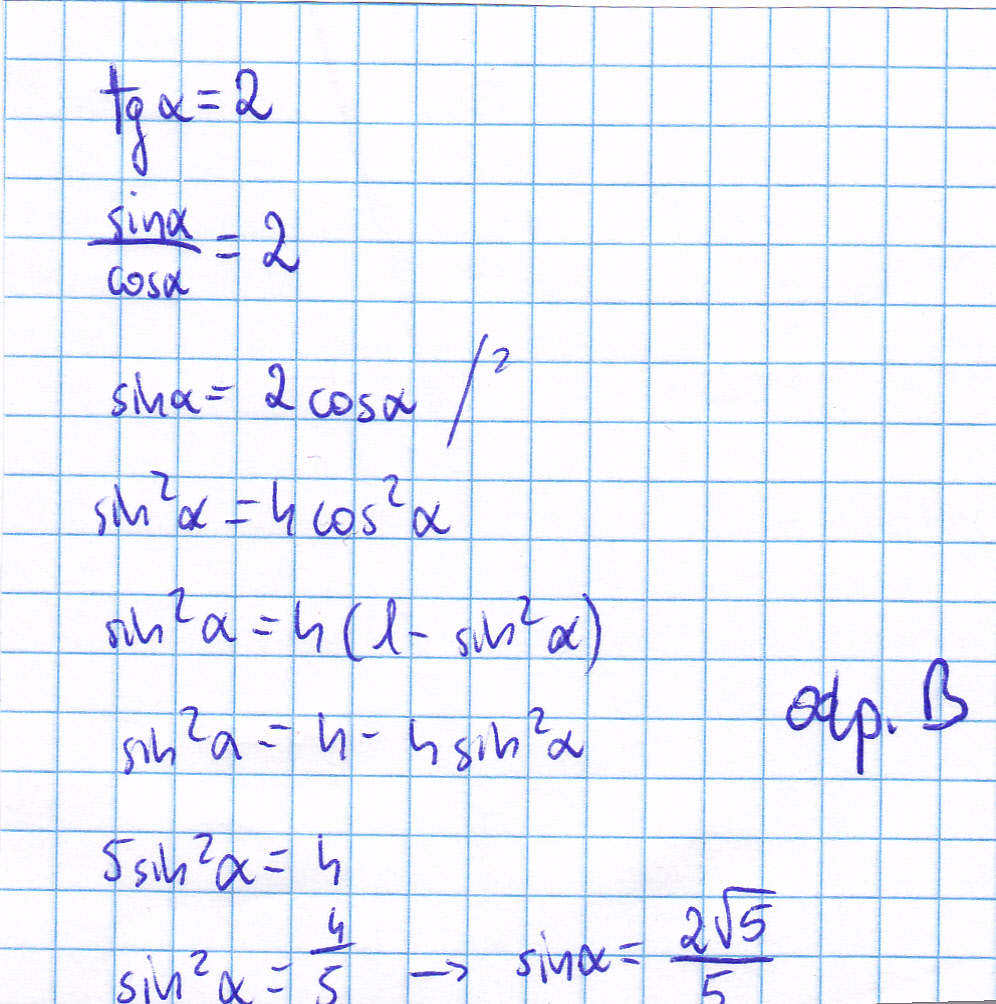 tg α = 2
sinα/cosα = 2
sinα = 2 cosα /²
sin²α = 4 cos²α
sin²α = 4 (1 - sin²α)
sin²α = 4 - 4 sin²α
odp. B
5 sin²α = 4
sin²α = 4/5 → sinα = 2√5/5